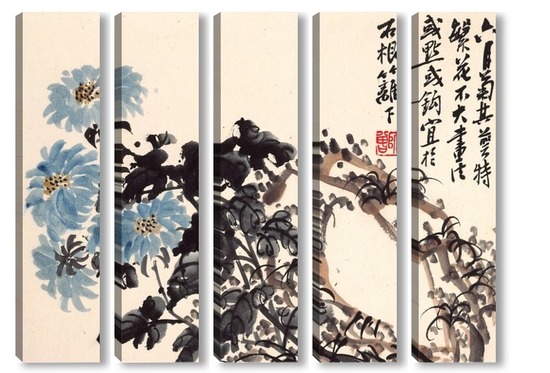 六月菊其藝特
繁花不大畫法
或點或鈎宜於
石根籬下